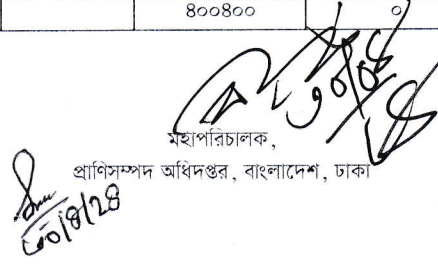 ৪০০৪০০ ০
মহাপরিচালক,
প্রাণিসম্পদ অধিদপ্তর, বাংলাদেশ, ঢাকা